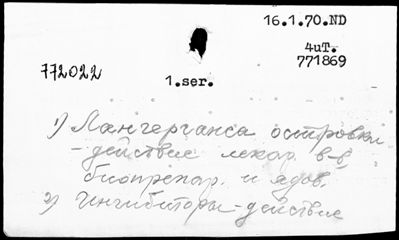 16.1.70.ND
4uT.
772022
771869
1.ser.
1) Лангерганса островки
- действие лекар. в-в,
биопрепар. и ядов.
2) Ингибиторы - действие